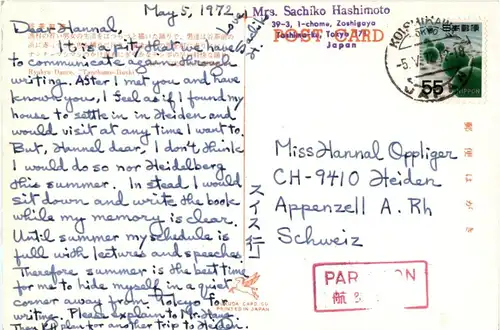 May 5, 1972
Dear Hannal,
It is a pity that we have
to communicate again through
writing. After I met you and have
known you, I feel as if I found my
house to settle in in Heiden and
would visit at any time I want to.
But, Hannal dear, I don't think
I would do so nor Heidelberg
this summer. In stead I would
sit down and write the book
while my memory is clear.
Until summer my schedule is
full with lectures and speeches.
Therefore summer is the best time
for me to hide myself in a quiet
corner away from Tokyo for
writing. Please explain to Mr. Haug
then plan for another trip to Heiden.
Love
Sachiko
H.
Mrs. Sachiko Hashimoto
39-3, 1-chome, Zoshigaya
Toshima-ku, Tokyo 171
Japan
POST CARD
KOISHIKAWA
日本郵便
55
NIPPON
Miss Hannal Oppliger
CH-9410 Heiden
Appenzell A. Rh
Schweiz
スイス行
郵便はがき
PAR AVION
PRINTED IN JAPAN